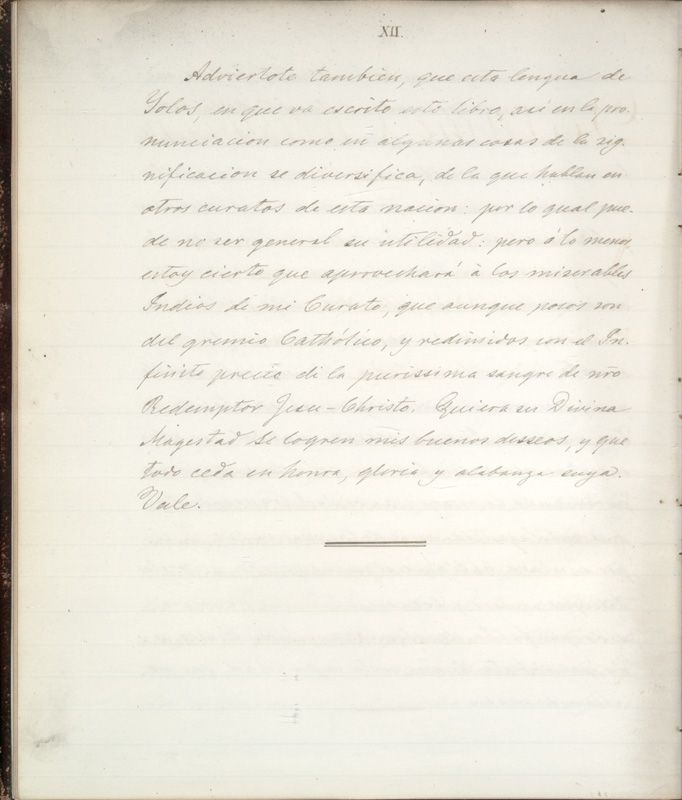 XII.
Adviertote tambien, que esta lengua de
Yolos, en que va escrito este libro, asi en la pro-
nunciacion como en algunas cosas de la sig-
nificacion se diversifica, de la que hablan en
otros curatos de esta nacion: por lo qual pue-
de no ser general su utilidad: pero á lo menos
estoy cierto que aprovechará à los miserables
Indios de mi Curato, que aunque pocos son
del gremio Cathólico, y redimidos con el In-
finito precio de la purissima sangre de nr̃o
Redemptor Jesu-Christo. Quiera su Divina
Magestad se logren mis buenos deseos, y que
todo ceda en honra, gloria y alabanza suya.
Vale.